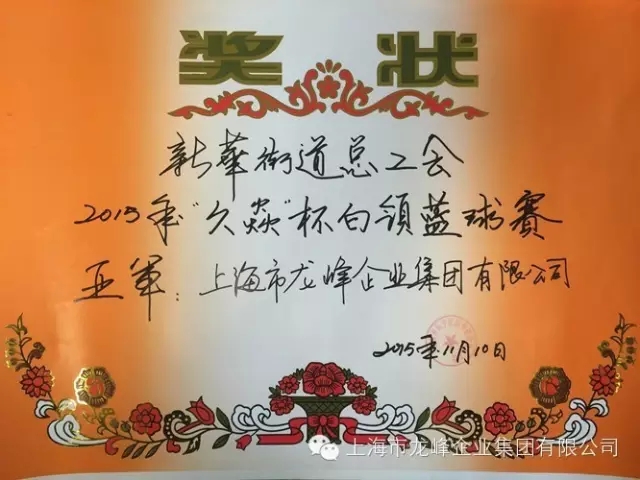 奖 状
新華街道总工会
2015年"久焱"杯白领蓝球赛
亚军：上海市龙峰企业集团有限公司
2015年11月10日
上海市龙峰企业集团有限公司